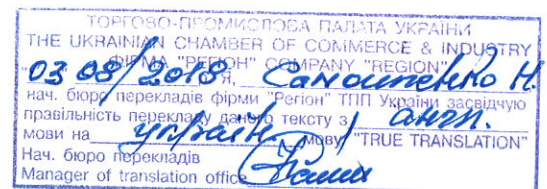 ТОРГОВО-ПРОМИСЛОВА ПАЛАТА УКРАЇНИ
THE UKRAINIAN CHAMBER OF COMMERCE & INDUSTRY
ФІРМА "РЕГІОН" COMPANY "REGION"
03 08/2018 Я, Самопенко Н.
нач. бюро перекладів фірми "Регіон" ТПП України засвідчую
правільність перекладу даного тексту з англ.
мови на україн мову "TRUE TRANSLATION"
Нач. бюро перекладів
Manager of translation office